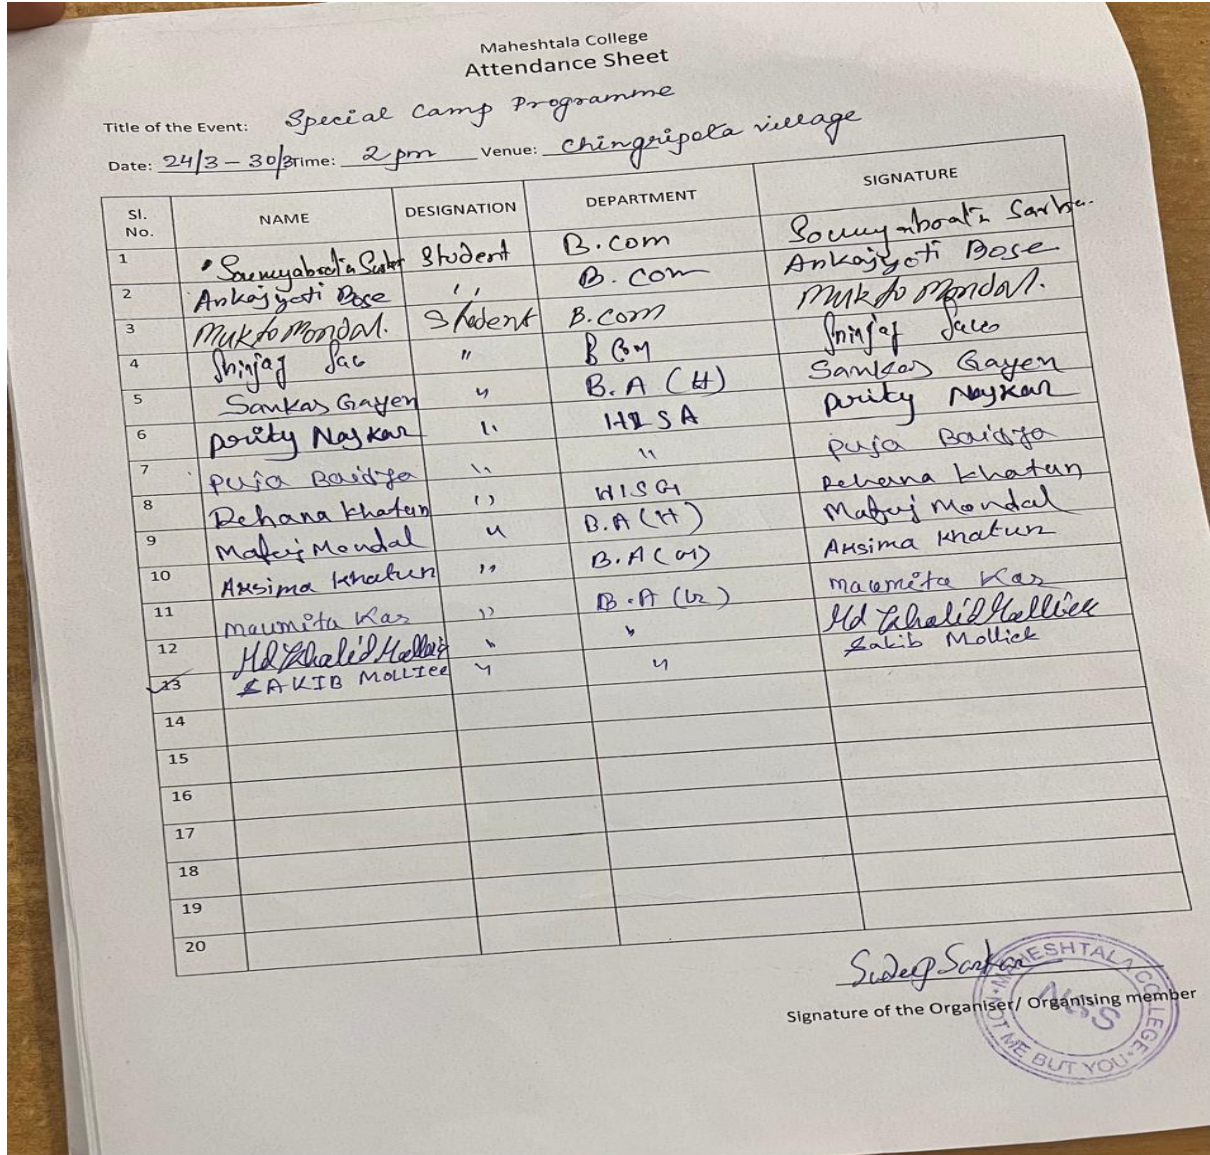 Maheshtala College
Attendance Sheet
Title of the Event: Special Camp Programme
Date: 24/3 - 30/3 Time: 2 pm Venue: Chingripota village
Sl. No. NAME DESIGNATION DEPARTMENT SIGNATURE
1 Student B.com
2 Ankajyoti Bose ,, B. com Ankajyoti Bose
3 Mukto Mondal. Student B.com Mukto Mondal.
4 " B Com
5 Sankar Gayen " B.A (H) Sankar Gayen
6 prity Naskar " HISA prity Naskar
7 puja Baidya " " puja Baidya
8 Rehana Khatun " HISG Rehana Khatun
9 Mafuj Mondal " B.A (H) Mafuj Mondal
10 Aksima Khatun " B.A (G) Aksima Khatun
11 Maumita Kar " B.A maumita Kar
12 Md Khalid Mollick " " Md Khalid Mollick
13 SAKIB MOLLICK " " Sakib Mollick
14
15
16
17
18
19
20
Sudeep Sarkar
Signature of the Organiser/ Organising member
MAHESHTALA COLLEGE
NSS
NOT ME BUT YOU